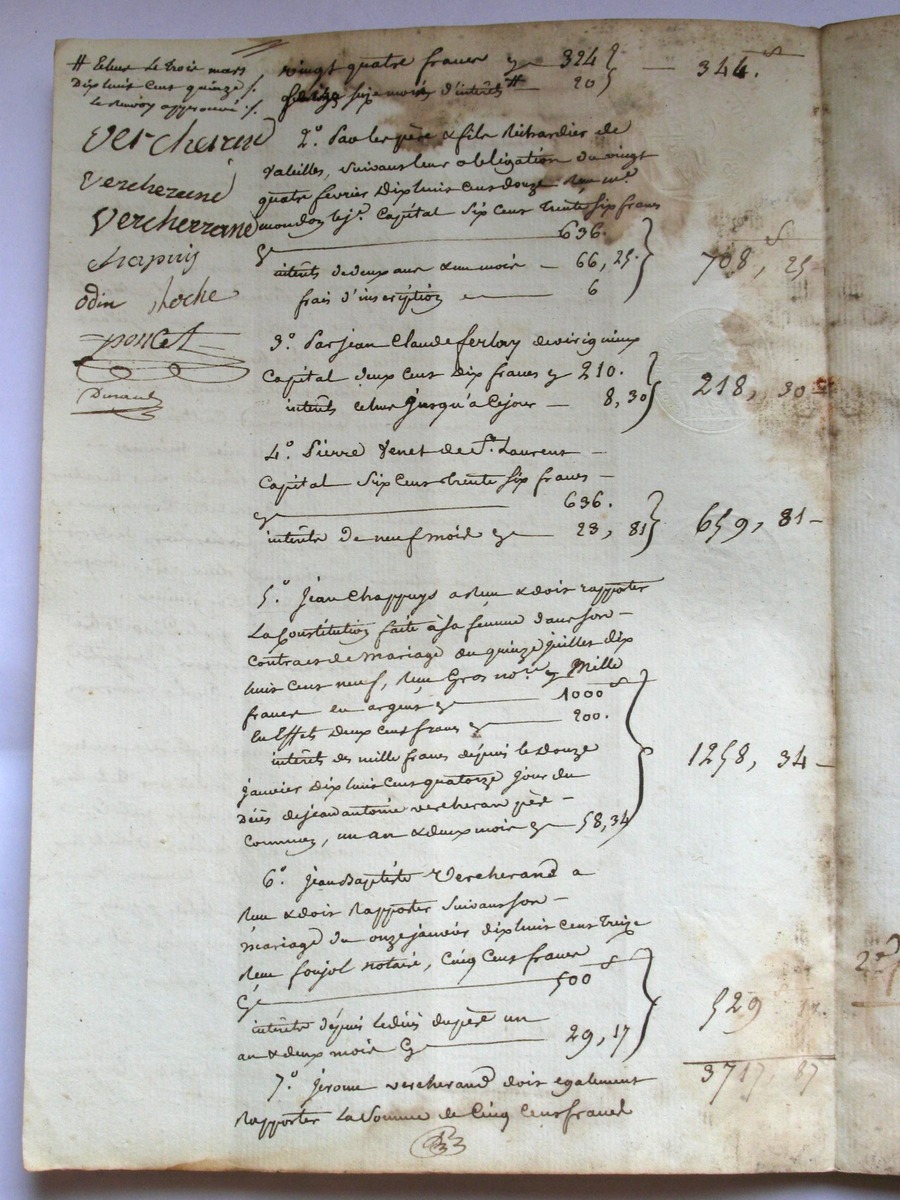 # Echus le trois mars
Dix huit cent quinze ./.
le renvoy approuvé ./.
vercherand
vercherand
Vercherrand
chapuis
odin Roche
poncet
Durand
vingt quatre francs cy 324
six mois d'intérêts # 20
344.
2.° Par les père & fils Richardier de
valeilles, suivant leur obligation du vingt
quatre février dix huit cent douze Reçu m.e
mondon le j.e Capital Six cent trente six francs
Cy 636.
intérêts de deux ans & un mois — 66, 25.
frais d'inscription — 6
708, 25
3.° Par jean Claude ferlay de virigneux
Capital deux cent dix francs cy 210.
intérêts echus jusqu'à ce jour — 8, 30
218, 30
4.° Pierre Venet de S.t Laurent —
Capital Six cent trente six francs —
cy 636.
intérêts de neuf mois cy — 23, 81
659, 81 —
5.° jean Chappuys a Reçu & doit rapporter
La Constitution faite à sa femme dans son —
contract de mariage du quinze juillet dix
huit cent neuf, Reçu Gros no.re cy Mille
francs en argent cy — 1000
En Effets deux cent francs cy — 200.
intérêts des mille francs depuis le douze
janvier dix huit cent quatorze jour du
décès de jean antoine vercherand père —
Commun, un an & deux mois cy — 58, 34
1258, 34 —
6.° jean Baptiste Vercherand a
Reçu & doit Rapporter suivant son —
mariage du onze janvier dix huit cent treize
Reçu foujol notaire, Cinq Cent francs
Cy 500
intérêts depuis le décès du père un
an & deux mois Cy — 29, 17
529 17
3717, 87
7.° jerome vercherand doit egalement
Rapporter La Somme de Cinq Cent francs